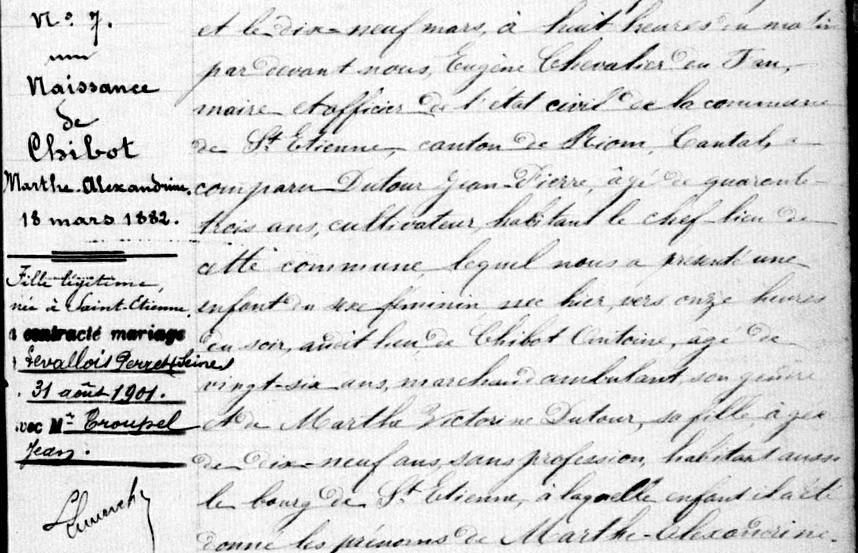 N.º 7.
Naissance
de
Chibot
Marthe-Alexandrine.
18 mars 1882.
Fille légitime,
née à Saint-Etienne.
a contracté mariage
à Levallois Perret (Seine)
31 août 1901.
avec Mr Troupel
Jean.
et le dix-neuf mars, à huit heures du matin
par devant nous, Eugène Chevalier du Fau,
maire et officier de l'état civil de la commune
de St Etienne, canton de Riom, Cantal, a
comparu Dutour Jean-Pierre, âgé de quarante-
trois ans, cultivateur, habitant le chef-lieu de
cette commune lequel nous a présenté une
enfant du sexe féminin, née hier, vers onze heures
du soir, audit lieu, de Chibot Antoine, âgé de
vingt-six ans, marchand ambulant, son gendre
et de Marthe Victorine Dutour, sa fille, âgée
de dix-neuf ans, sans profession, habitant aussi
le bourg de St Etienne, à laquelle enfant il a été
donné les prénoms de Marthe-Alexandrine.